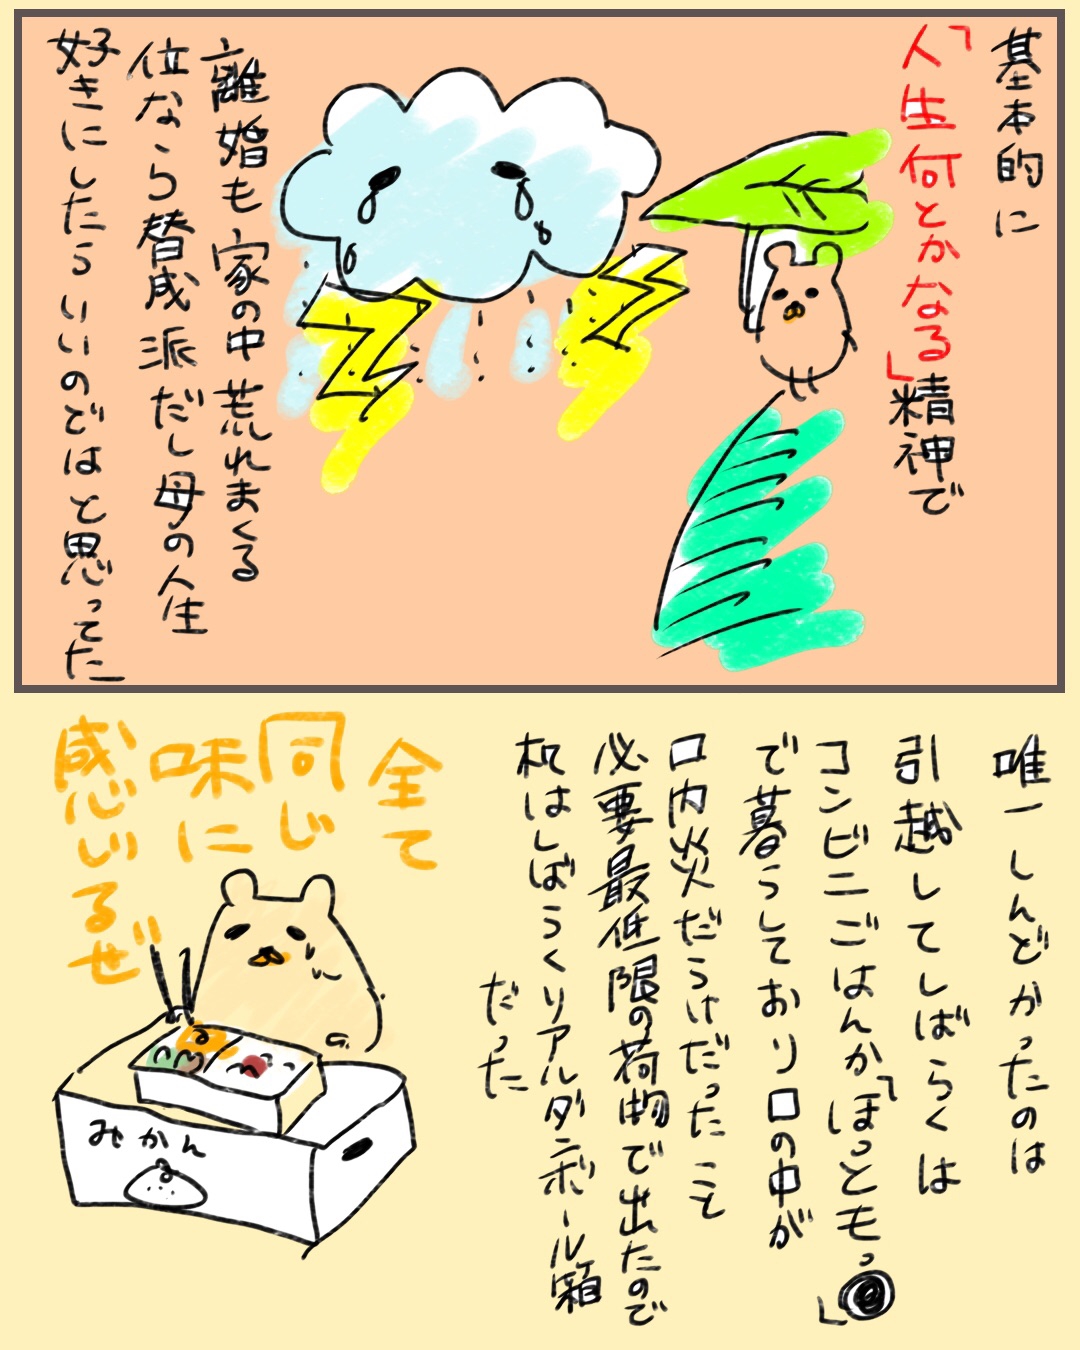 基本的に
「人生何とかなる」精神で
離婚も家の中荒れまくる
位なら替成派だし母の人生
好きにしたらいいのではと思ってた
唯一しんどかったのは
引越してしばらくは
コンビニごはんか「ほっともっ
」
で暮らしており口の中が
口内炎だらけだったこと
必要最低限の荷物で出たので
机はしばらくリアルダンボール箱
だった
全て
同じ
味に
感じるぜ
みかん